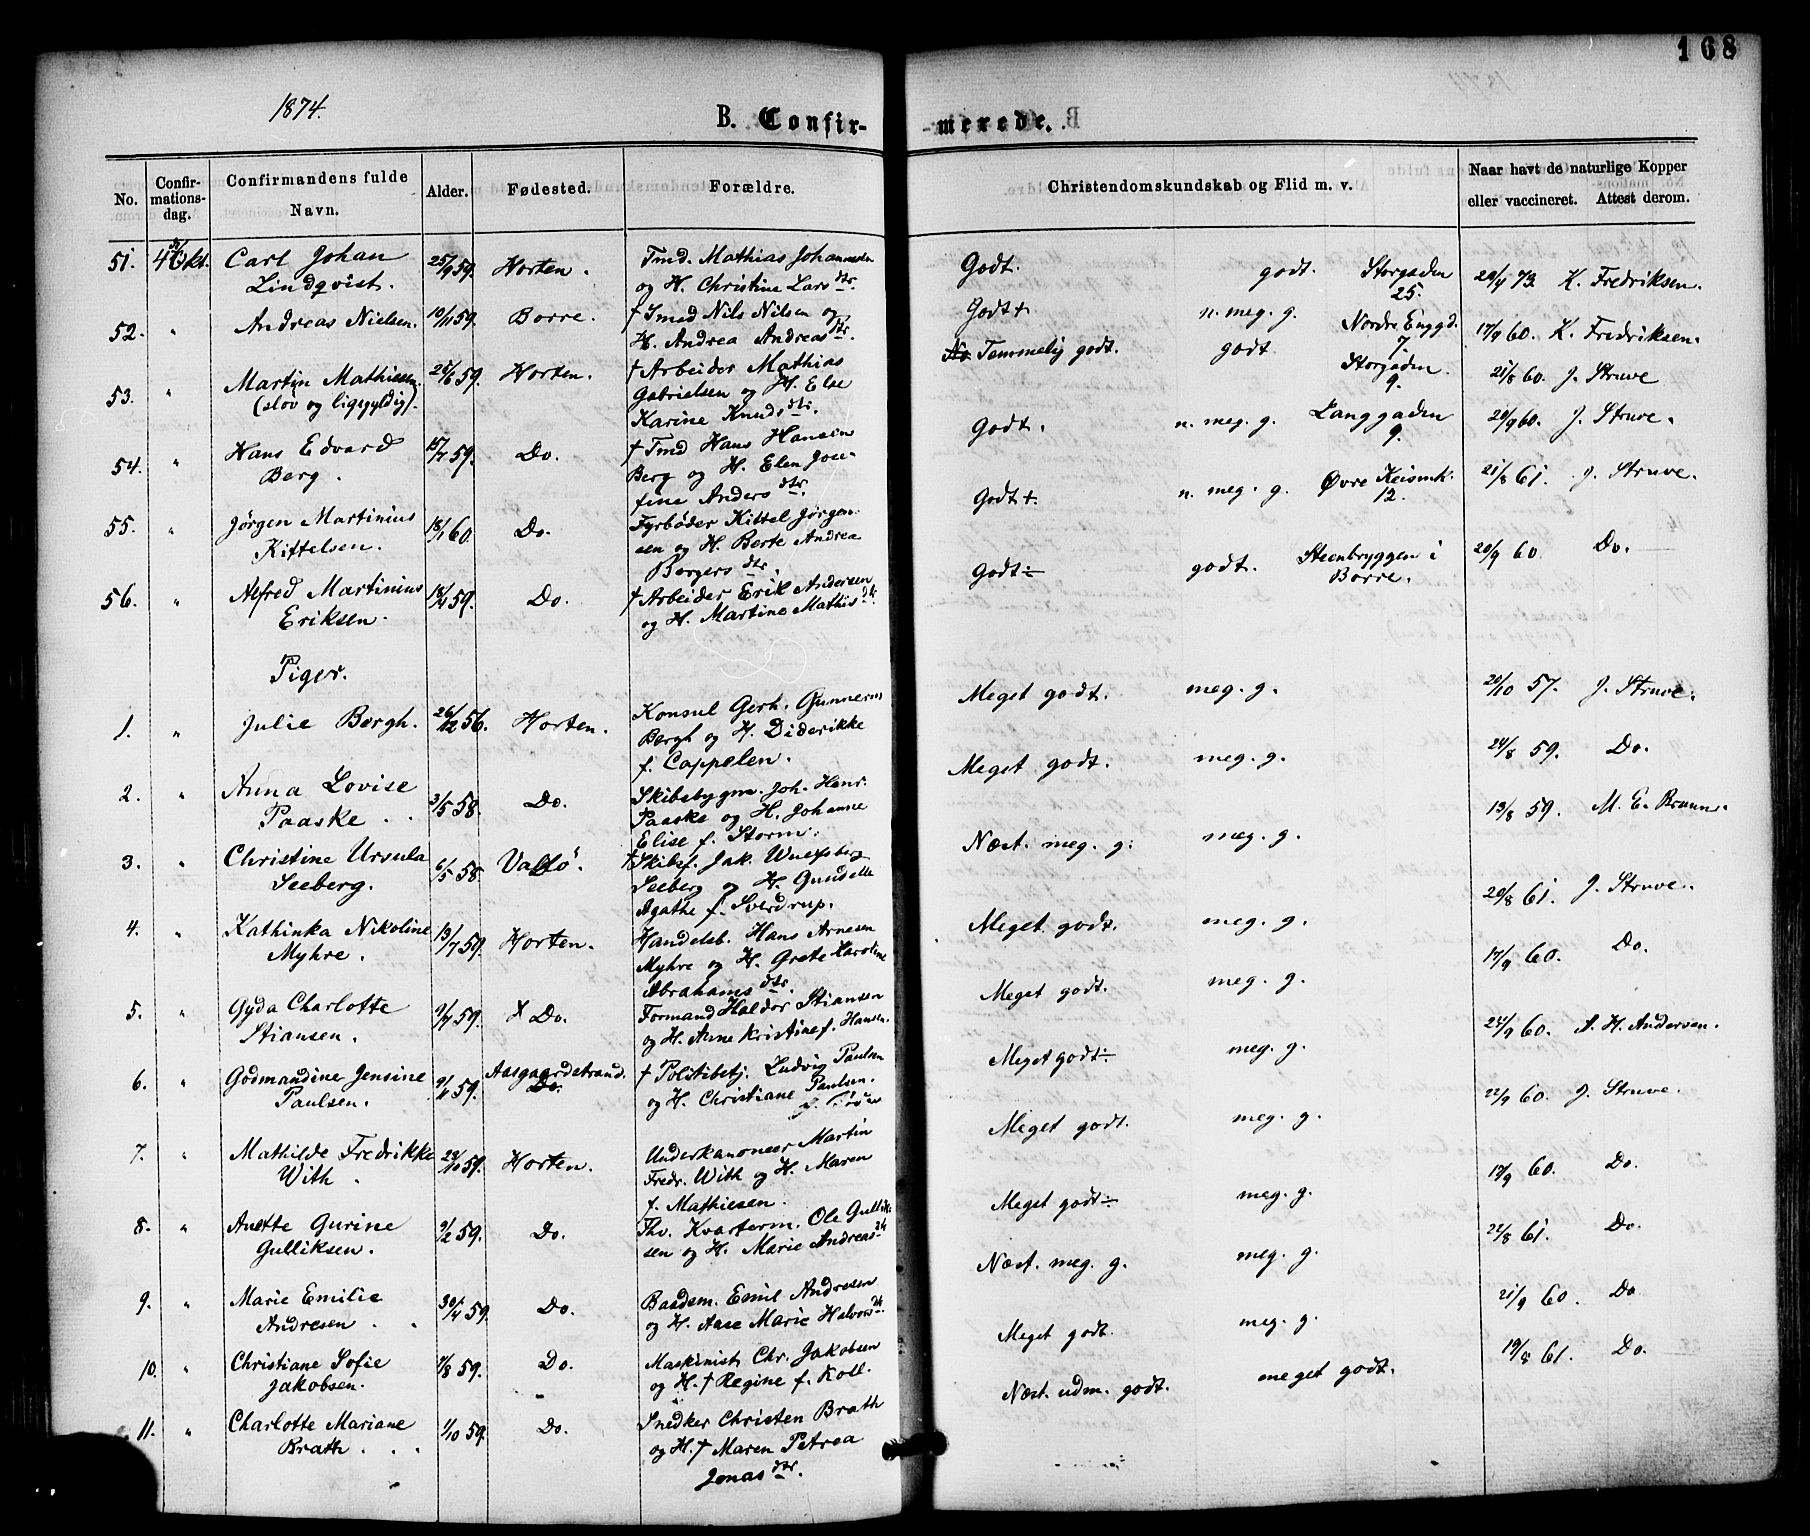 168
1874.
B. Confir-
merede.
No.
Confir-
mations-
dag.
Confirmandens fulde
Navn.
Alder.
Fødested.
Forældre.
Christendomskundskab og Flid m. v.
Naar havt de naturlige Kopper
eller vaccineret. Attest derom.
51. 4 Okt. Carl Johan 25/9 59. Horten. Tmd. Mathias Johannesen
Lindqvist. og H. Christine Lars dtr.
Godt. godt. Storgaden 29/4 73. K. Fredriksen.
25.
52. " Andreas Nielsen. 10/11 59. Borre. † Smed Nils Nilsen og
H. Andrea Andreas dtr.
Godt+ n. meg. g. Nordre Enggd. 17/9 60. K. Fredriksen.
7.
53. " Martin Mathiesen. 25/6 59. Horten. † Arbeider Mathias
(sløv og ligegyldig). Gabrielsen og H. Else
Karine Knuds dtr.
Temmelig godt. godt Storgaden 21/8 60. J. Struve
9.
54. " Hans Edvard 15/7 59. Do. † Tmd Hans Hansen
Berg. Berg og H. Elen Jose-
fine Anders dtr.
Godt. n. meg. g. Langgaden 20/9 60. J. Struve.
9.
55. " Jörgen Martinius 18/1 60. Do. Fyrbøder Kittel Jörgen-
Kittelsen. sen og H. Berte Andrea
Borgers dtr.
Godt+ n. meg. g. Øvre Keismk. 21/8 61. J. Struve.
12.
56. " Alfred Martinius 18/4 59. Do. † Arbeider Erik Andersen
Eriksen. og H. Martine Mathis dtr.
Godt÷ godt. Steenbryggen i 20/9 60. Do.
Borre.
Piger.
1. " Julie Bergh. 26/12 56. Horten. Konsul Gerh. Gunnerus
Bergh og H. Diderikke
f. Cappelen.
Meget godt. meg. g. 20/10 57. J. Struve.
2. " Anna Lovise 3/5 58. Do. Skibsbygm. Joh. Henr.
Paaske. Paaske og H. Johanne
Elise f. Storm.
Meget godt. meg. g. 24/8 59. Do.
3. " Christine Ursula 6/5 58. Valö † Skibsf. Jak. Wulfsberg
Seeberg. Seeberg og H. Gundelle
Agathe f. Sverdrup.
Næst. meg. g. meg. g. 13/8 59. M. E. Bruun.
4. " Kathinka Nikoline 13/7 59. Horten. Handelsb. Hans Arnesen
Myhre. Myhre og H. Grete Karoline
Abrahams dtr.
Meget godt. meg. g. 20/8 61. J. Struve.
5. " Gyda Charlotte 9/7 59. X Do. Formand Haldor Stiansen
Stiansen. og H. Anne Kristine f. Hansen.
Meget godt. meg. g. 17/9 60. Do.
6. " Godmandine Jensine 9/11 59. Aasgaardstrand. † Politibetj. Ludvig Paulsen
Paulsen. Do. og H. Christiane Paulsen.
Meget godt÷ meg. g. 24/9 60. A. H. Andersen.
7. " Mathilde Fredrikke 22/10 59. Horten. Underkanoneer Martin
With. Fredr. With og H. Maren
f. Mathiesen.
Meget godt. meg. g. 22/9 60. J. Struve.
8. " Anette Gurine 9/2 59. Do. Thv. Kvarterm. Ole Gullik-
Gulliksen. sen og H. Marie Andreas dtr
Meget godt÷ meg. g. 17/9 60. Do.
9. " Marie Emilie 30/4 59. Do. Baadsm. Emil Andresen
Andresen. og H. Aase Marie Halvors dtr.
Næst. meg. g. meg. g. 22/8 61. Do.
10. " Christiane Sofie 7/8 59. Do. Maskinist Chr. Jakobsen
Jakobsen. og H. † Regine f. Koll.
Meget godt. meg. g. 21/9 60. Do
11. " Charlotte Mariane 1/10 59. Do. Snedker Christen Brath
Brath. og H. † Maren Petrea
Jonas dtr.
Næst. udm. godt. meget godt. 19/8 61. Do.